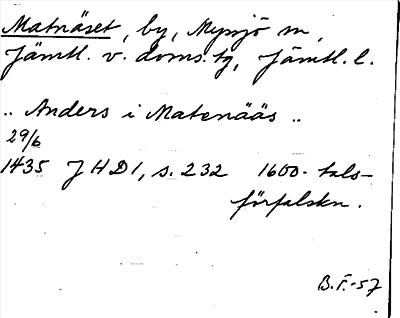 Matnäset, by, Myssjö sn,
Jämtl. v. doms. tg, Jämtl. l.
.. Anders i Matenääs ..
29/6
1435 JHD1, s. 232 1600-tals-
förfalskn.
B.F.-57